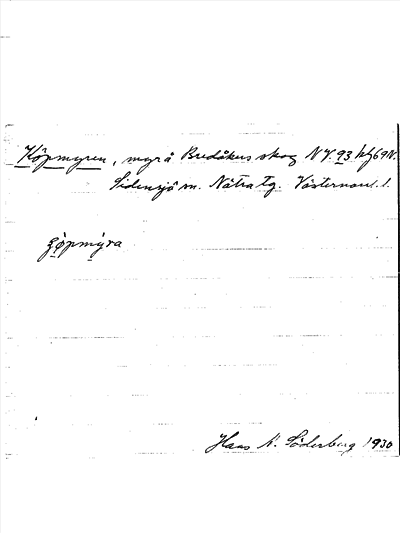 Köpmyren, myr å Bredåkers skog NV. 93 kbl 69 N.
Sidensjö sn. Nätra tg. Västernorrl. l.
göpmýra
Hans K. Söderberg 1930